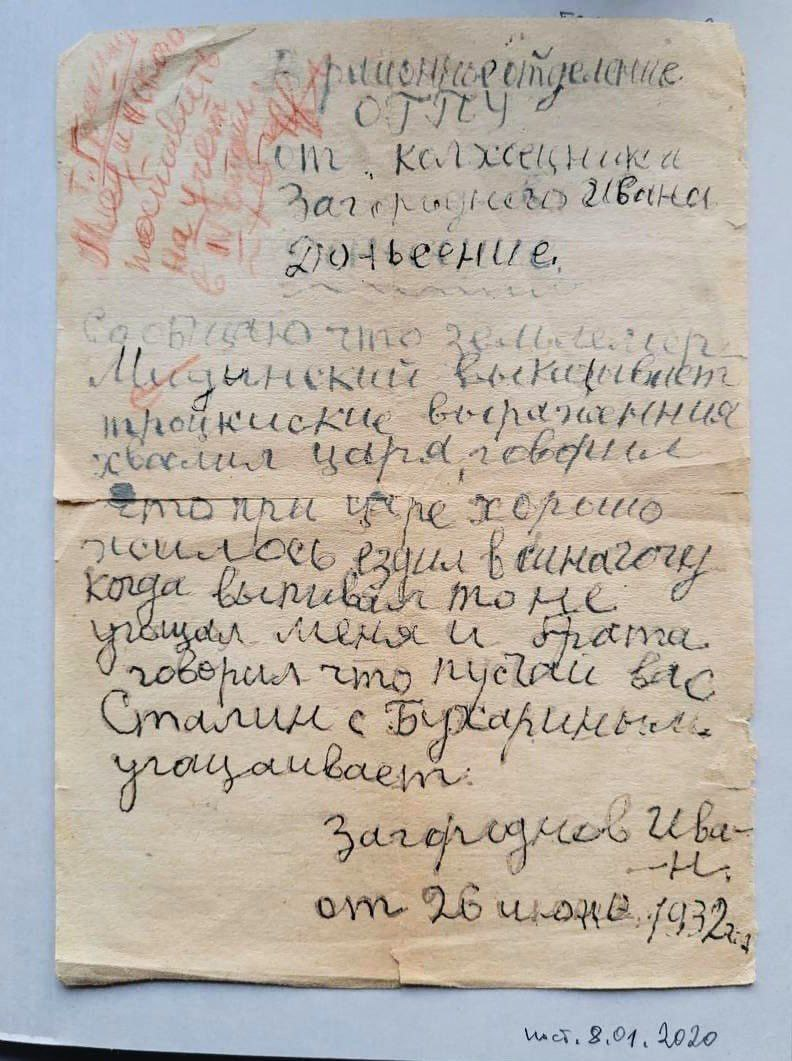 поставить
на учет
В районное отделение
ОГПУ
от колхецника
Загороднего Ивана
Доньесение.
Сабщаю что земьлемер
Мидынский выкицывает
троцкиские выражения
хвалил царя, говорил
что при царе хорошо
жилось ездил в синагогу
когда выпивал то не
угощал меня и брата
говорил что пусчай вас
Сталин с Бухариным
угащаивает.
Загороднов Ива-
-н.
от 26 июня 1932
8.01.2020